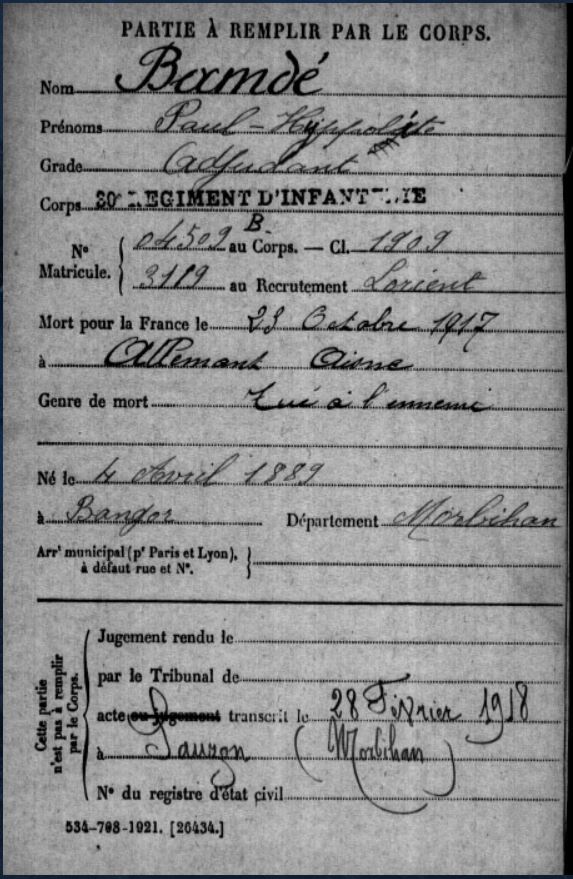 PARTIE À REMPLIR PAR LE CORPS.
Nom Bamdé
Prénoms Paul - Hyppolite
Grade Adjudant
Corps 30e REGIMENT D'INFANTERIE
B
N° Matricule. 04509 au Corps. — Cl. 1909
3119 au Recrutement Lorient
Mort pour la France le 23 Octobre 1917
à Allemant Aisne
Genre de mort Tué à l'ennemi
Né le 4 Avril 1889
à Bangor Département Morbihan
Arrt municipal (pr Paris et Lyon),
à défaut rue et N°.
Cette partie n'est pas à remplir par le Corps.
Jugement rendu le
par le Tribunal de
acte ou jugement transcrit le 28 Février 1918
à Sauzon (Morbihan)
N° du registre d'état civil
534-708-1921. [26434.]